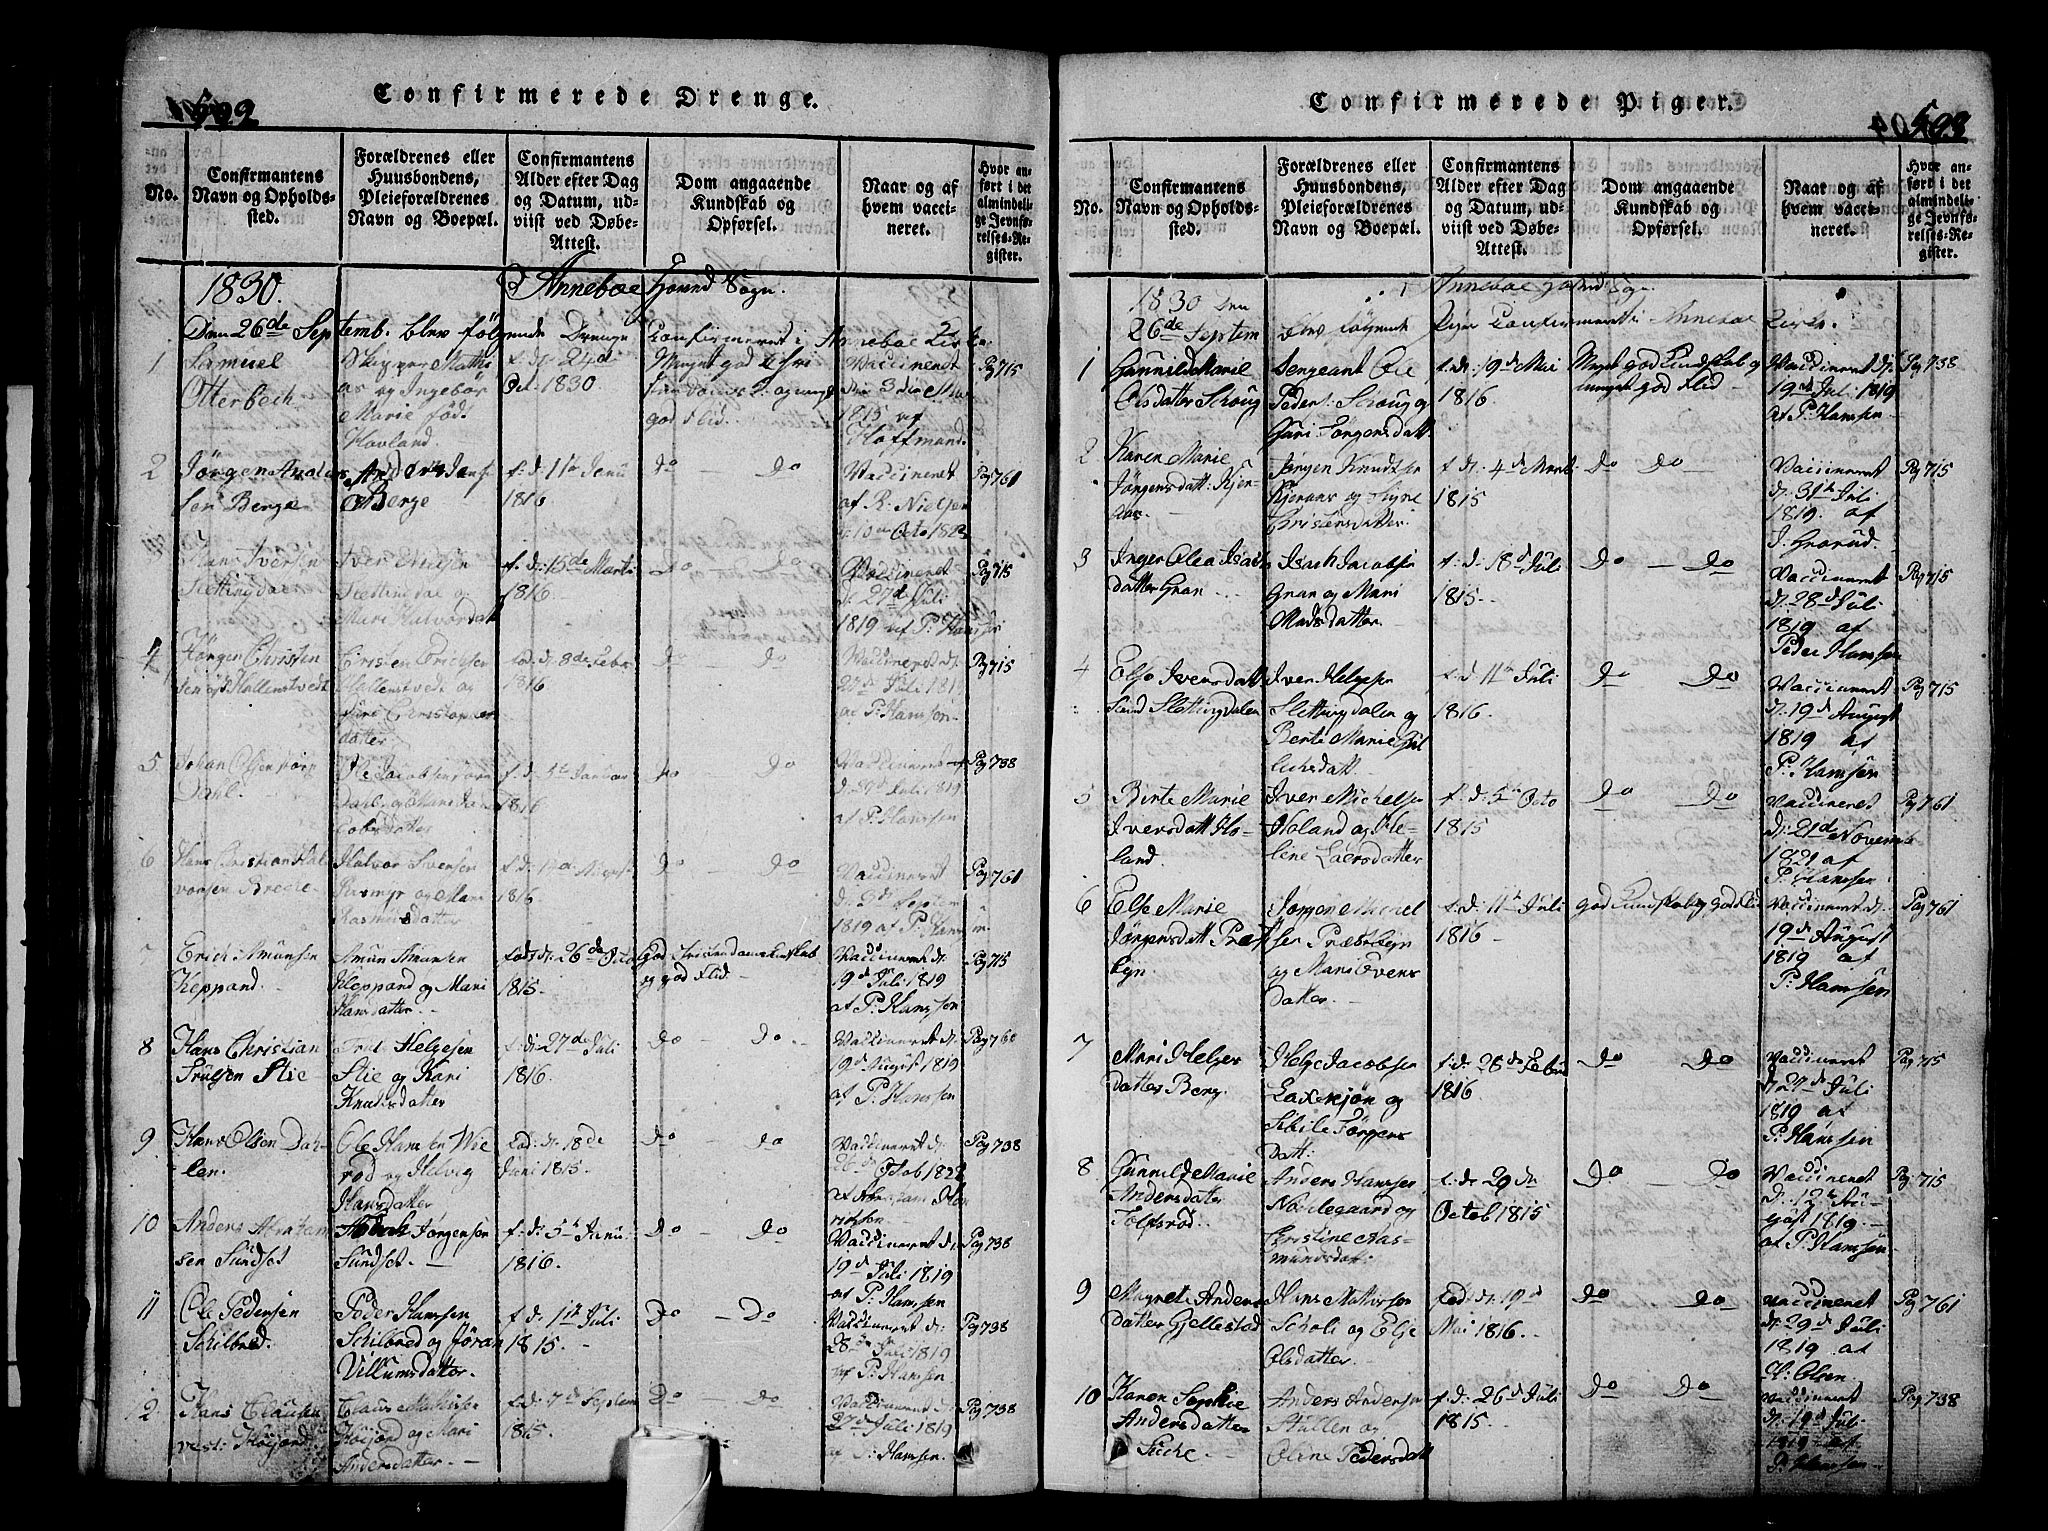 Confirmerede Drenge.
592
No.
Confirmantens
Navn og Opholds-
sted.
Forældrenes eller
Huusbondens,
Pleieforældrenes
Navn og Boepæl.
Confirmantens
Alder efter Dag
og Datum, ud-
viist ved Døbe-
Attest.
Dom angaaende
Kundskab og
Opførsel.
Naar og af
hvem vacci-
neret.
Hvor an-
ført i det
almindeli-
ge Jevnfø-
relses-Re-
gister.
1830.
Anneboe Hoved Sogn.
Den 26de Septemb. blev følgende Drenge Confirmeret i Anneboe Kirke.
1
Samuel
Otterbech
Skipper Mathi
as og Ingebør
Marie fød
Hovland.
f. d. 24de
Oct. 1830
Meget god
god Flid.
Vaccineret
den 3die Mai
1815 af
Hoffmand.
Pag 715
2
Jørgen Ander
sen Berge
Anders
Berge
f. d. 11te Janu
1816
do — do
Vaccineret
af R. Nielsen
d: 10de Octo 1823
Pag 761
Hans Iversen
Slettingdae
Iver Nielsen
Slettingdae og
Mari Halvorsdatt
f. d: 15de Marti
1816.
do — do
Vaccineret
d. 27de Juli
1819 af P: Hansen
Pag 715
4
Jørgen Christen
sen Hallenstvedt
Cristen Erichsen
Hallenstvedt og
Siri Christopher
datter
fød. d. 8de Febr
1816
do — do
Vaccineret d.
27de Juli 1819
af P. Hanssen.
Pag 715
5
Johan Olsen
Dahl.
Ole Jacobsen
Dahl og Mari Ja
cobsdatter
f. d. 5te Januar
1816
do — do
Vaccineret
Juli 1819
af P. Hanssen
Pag 738
6
Hans Christian Hal
vorsen Brecke
Halvor Svensen
og Maria
Rasmusdatter
f. d. 17de
1816
do — do
Vaccineret
Septem
1819 af P. Hans
Pag 761
7
Erich Amunsen
Keppand.
Amun Amunsen
Kleppand og Mari
Hansdatter. -
fød d. 26de Octo
1815.
God Cristendomskundskab
og god Flid —
Vaccineret d.
19de Juli 1819
af P. Hanssen
Pag 715
8
Hans Christian
Trulsen Stie
Trul Helgesen
Stie og Kari
Knudsdatter
f. d: 27de Juli
1816.
do — do
Vaccineret d:
19de August 1819
af P. Hanssen
Pag 760
9
Hans Olsen Dah-
len.
Ole Hansen Wie
rød og Helvig
Hansdatter
fød: d: 18de
Juni 1815.
do — do
Vaccineret d.
1828
af Abraham
Pag 738
10
Anders Abraham
sen Sundset
Jørgensen
Sundset.
f. d: 5te Janu
1816.
do — do
Vaccineret d:
19de Juli 1819
af P. Hanssen
Pag 738
11
Ole Pedersen
Schilbred.
Peder Hansen
Schilbred og Jøran
Villumsdatter.
f. d: 11te Juli
1815. -
Do — Do
Vaccineret d:
28de Juli 1819
af P. Hanssen
Pag 738
12.
Hans Clausen
vest: Høijord
Claus Mathisen
Høijord og Mari
Andersdatter. —
f. d. 7de Septem
1815
Do — do
Vaccineret d.
27de Juli 1819
af P. Hanssen.
Pag 738
Confirmerede Piger.
593
No.
Confirmantens
Navn og Opholds-
sted.
Forældrenes eller
Huusbondens,
Pleieforældrenes
Navn og Boepæl.
Confirmantens
Alder efter Dag
og Datum, ud-
viist ved Døbe-
Attest.
Dom angaaende
Kundskab og
Opførsel.
Naar og af
hvem vacci-
neret.
Hvor an-
ført i det
almindeli-
ge Jevnfø-
relses-Re-
gister.
Anneboe Hoved Sogn.
1830 den
26de Septem blev følgende Piger Confirmeret i Anneboe Kirke.
1
Gunnild Marie
Olsdatter Schoug
Sergeant Ole
Peders: Schoug og
Gari Jorgensdatt.
f. d: 19de Mai
1816
Meget god Kundskab og
meget god Flid —
Vaccineret d.
19de Juli 1819
af P: Hanssen.
Pag 738
2
Karen Marie
Jørgensdatt: Kjer-
aas.
Jørgen Knudsen
Kjeraas og Signe
Christensdatter.
f. d. 4de Marti
1815
do do —
Vaccineret
d. 31te Juli
1819. af
J. Grorud.
Pag 715
3
Inger Olea Isachs
datter Gran
Isach Jacobsen
Gran og Mari
Madsdatter.
f. d: 18de Juli
1815. -
do — do
Vaccineret
d. 28de Juli
1819 af
Peder Hanssen
Pag 715
4
Else Iversdatt
Slettingdalen
Iver Helgesen
Slettingdalen og
Berte Marie Gul
lichsdatt.
f. d 11te Juli
1816.
do do
Vaccineret
d. 19de August
1819 af
P. Hanssen
Pag 715
5
Berte Marie
Iversdatt Ho-
land.
Iver Michelsen
Holand og He-
line Laersdatter
f. d: 5te Octo
1815
do do
Vaccineret
d: 21de Novemb
1821 af
P. Hanssen
Pag 761
6
Else Marie
Jørgensdatt Præst
byn
Jørgen Michel
sen Præstbyn
og Mari Evens
datter.
f: d: 11te Juli
1816 -
god Kundskab og god Flid
Vaccineret d:
19de August
1819 af
P: Hanssen
Pag 761
7
Mari Helges
datter Berg.
Helge Jacobsen
Laxesjøn og
Sibile Jørgens
datt:
f. d: 28de Febru
1816
do do
Vaccineret
d: 27de Juli
1819 af
P: Hanssen
Pag 715
8
Gunnild Marie
Andersdatter
Tolfsrød.
Anders Hansen
Nordegaard og
Christine Aas-
mundsdat:
f. d: 29de
Octob 1815
do do
Vaccineret
d. 12te Au-
gust 1819. -
af P. Hanssen
Pag 715
9
Magrete Anders
datter Gjellestad
Hans Mathissen
Schole og Elje
Olsdatter.
fød: d: 19de
Mai 1816. -
do do
Vaccineret
d: 29de Juli
1819 af
H: Olsen
Pag 761
10
Karen Sophie
Andersdatter
Anders Andersen
Stullen og
Oline Pedersdatt
f. d: 26de Juli
1815.
do do
Vaccineret
d: 19de Juli
1819 af
P. Hanssen
Pag 738